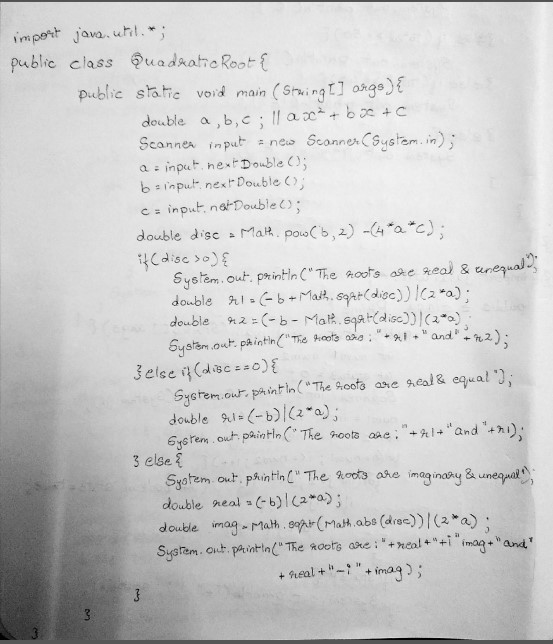 import java.util.*;
public class QuadraticRoot{
public static void main (String[] args){
double a,b,c ; // ax² + bx + c
Scanner input = new Scanner(System.in);
a = input.nextDouble();
b = input.nextDouble();
c = input.netDouble();
double disc = Math.pow(b,2) -(4*a*c);
if(disc >0){
System.out.println("The roots are real & unequal");
double r1 = (-b + Math.sqrt(disc))/(2*a);
double r2 = (-b - Math.sqrt(disc))/(2*a);
System.out.println("The roots are : "+r1+" and" +r2);
}else if(disc ==0){
System.out.println("The roots are real & equal ");
double r1 = (-b)/(2*a);
System.out.println(" The roots are: "+r1+"and "+r1);
} else{
System.out.println(" The roots are imaginary & unequal");
double real = (-b)/(2*a);
double imag = Math.sqrt(Math.abs(disc))/(2*a) ;
System.out.println("The roots are : "+real+"+i"imag+"and"
+ real+"-i"+imag);
}
}
}